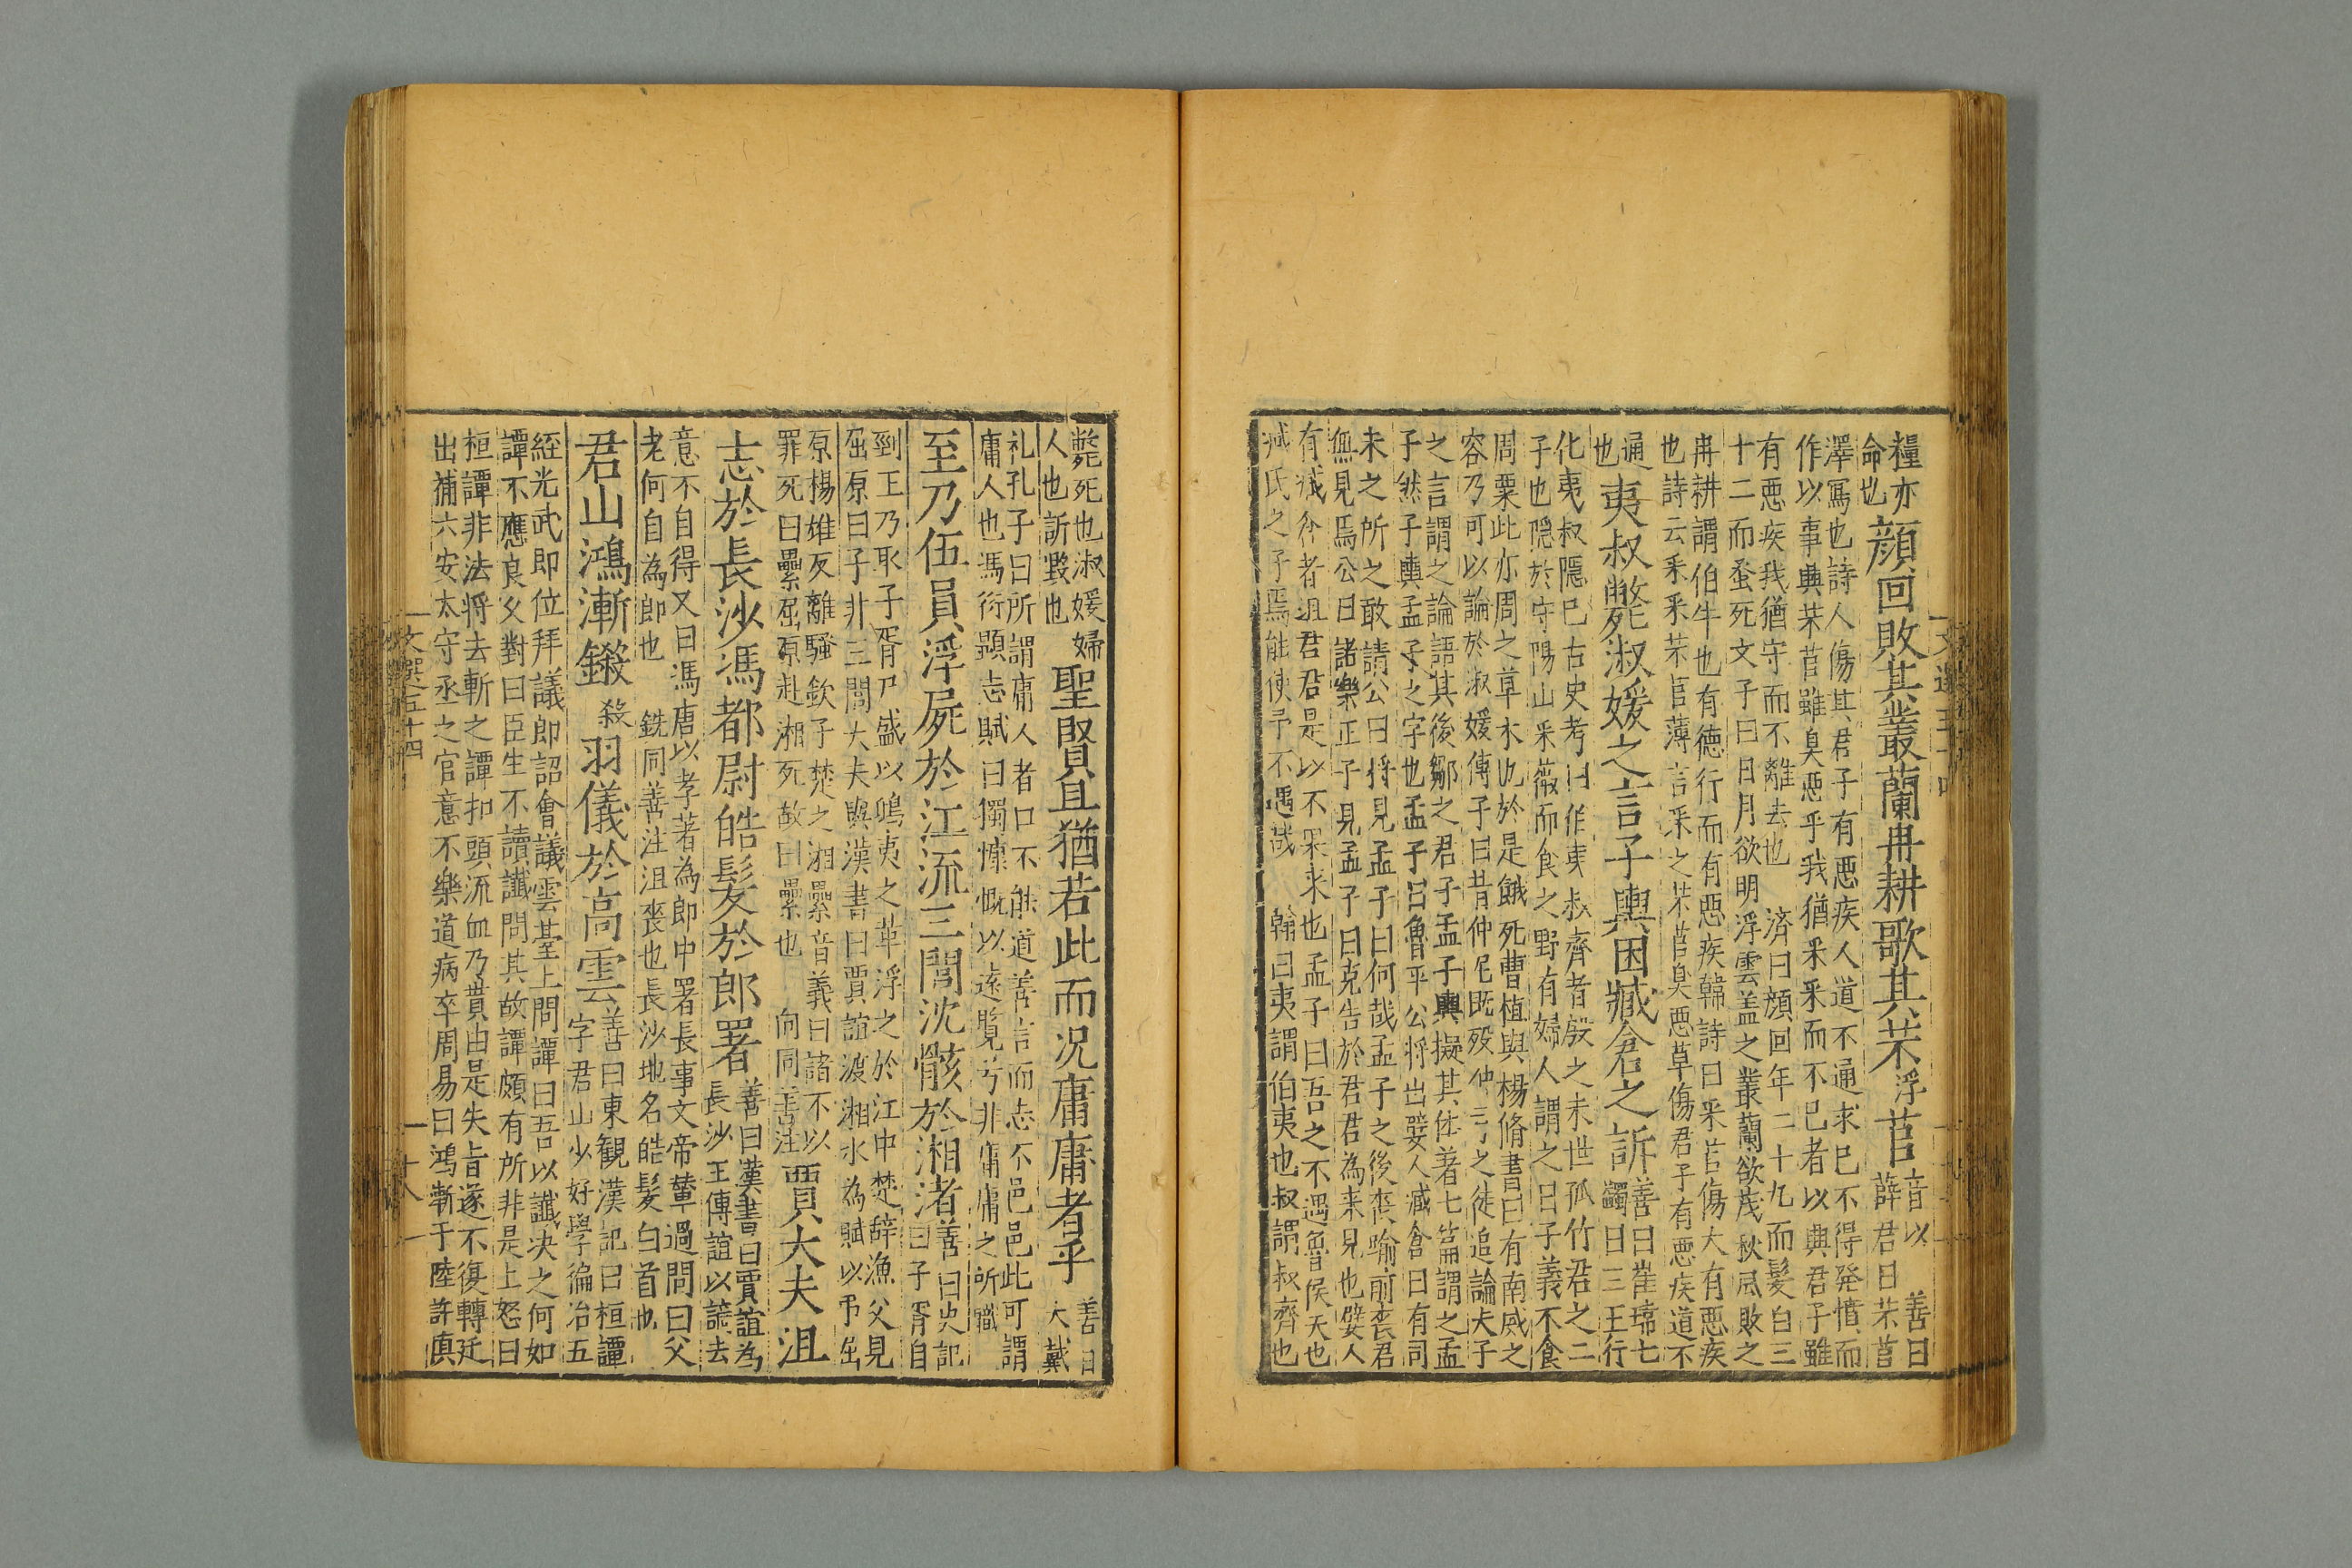 糧亦
命也
顔回敗其叢蘭冉耕歌其芣
浮
苢
音以 善曰
薛君曰芣苢
澤寫也詩人傷其君子有悪疾人道不通求已不得発憤而
作以事興芣苢雖臭悪乎我猶采采而不已者以興君子雖
有悪疾我猶守而不離去也 済曰顔回年二十九而髮白三
十二而蚤死文子曰日月欲明浮雲盖之叢蘭欲茂秋風敗之
冉耕謂伯牛也有徳行而有悪疾韓詩曰采苢傷大有悪疾
也詩云采采芣苢薄言采之芣苢臭悪草傷君子有悪疾道不
通
也
夷叔斃淑媛之言子輿困臧倉之訴
善曰崔琦七
蠲曰三王行
化夷叔隠已古史考曰伯夷叔齊者殷之末世孤竹君之二
子也隠於守陽山采薇而食之野有婦人謂之曰子義不食
周粟此亦周之草木也於是餓死曹植與楊脩書曰有南威之
容乃可以論於淑媛傅子曰昔仲尼既歿仲弓之徒追論夫子
之言謂之論語其後鄒之君子孟子輿擬其体著七篇謂之孟
子然子輿孟子之字也孟子曰魯平公将出嬖人臧倉曰有司
未之所之敢請公曰将見孟子曰何哉孟子之後喪踰前喪君
無見焉公曰諾樂正子見孟子曰克告於君君為来見也嬖人
有臧倉者沮君君是以不果来也孟子曰吾之不遇魯侯天也
臧氏之子焉能使予不遇哉 翰曰夷謂伯夷也叔謂叔齊也
斃死也淑媛婦
人也訴毀也
聖賢且猶若此而況庸庸者乎
善曰
大戴
礼孔子曰所謂庸人者口不能道善言而志不邑邑此可謂
庸人也馮衍顕志賦曰獨慷慨以遠覧兮非庸庸之所職
至乃伍員浮屍於江流三閭沈骸於湘渚
善曰史記
曰子胥自
剄王乃取子胥尸盛以鴟夷之革浮之於江中楚辞漁父見
屈原曰子非三閭大夫與漢書曰賈誼渡湘水為賦以弔屈
原楊雄反離騷欽子楚之湘纍音義曰諸不以
罪死曰纍屈原赴湘死故曰纍也 向同善注
賈大夫沮
志於長沙馮都尉皓髮於郎署
善曰漢書曰賈誼為
長沙王傅誼以謫去
意不自得又曰馮唐以孝著為郎中署長事文帝輦過問曰父
老何自為郎也 銑同善注沮喪也長沙地名皓髮白首也
君山鴻漸鎩
殺
羽儀於高雲
善曰東観漢記曰桓譚
字君山少好學徧治五
經光武即位拜議郎詔會議雲臺上問譚曰吾以讖决之何如
譚不應良久對曰臣生不讀讖問其故譚頗有所非是上怒曰
桓譚非法将去斬之譚扣頭流血乃貰由是失旨遂不復轉迁
出補六安太守丞之官意不樂道病卒周易曰鴻漸于陸許慎
文選五十四
十八